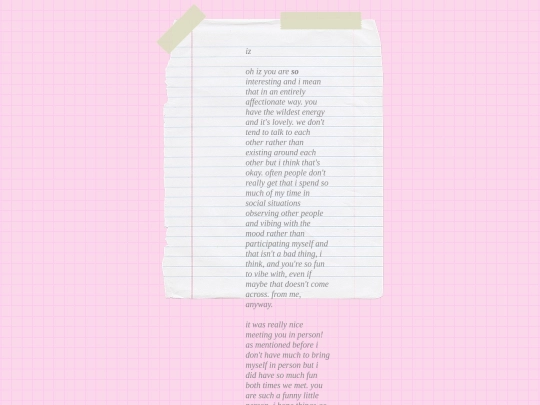 iz
oh iz you are so
interesting and i mean
that in an entirely
affectionate way. you
have the wildest energy
and it's lovely. we don't
tend to talk to each
other rather than
existing around each
other but i think that's
okay. often people don't
really get that i spend so
much of my time in
social situations
observing other people
and vibing with the
mood rather than
participating myself and
that isn't a bad thing, i
think, and you're so fun
to vibe with, even if
maybe that doesn't come
across. from me,
anyway.
it was really nice
meeting you in person!
as mentioned before i
don't have much to bring
myself in person but i
did have so much fun
both times we met. you
are such a funny little